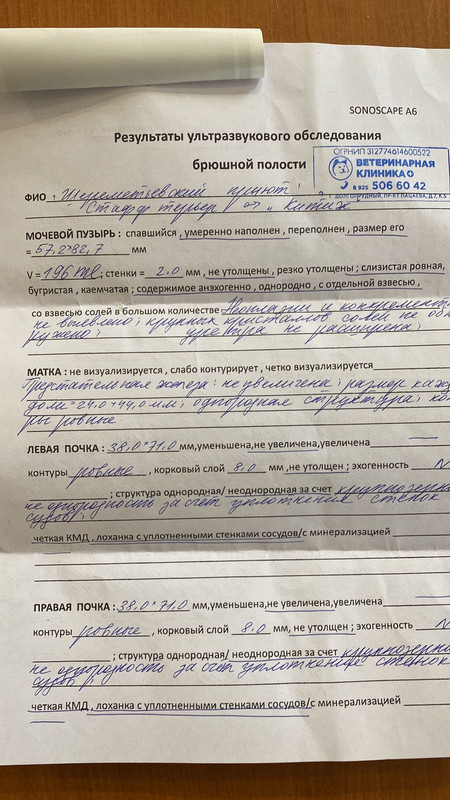 SONOSCAPE A6
Результаты ультразвукового обследования
брюшной полости
ОГРНИП 312774614600522
ВЕТЕРИНАРНАЯ
КЛИНИКА
8 925 506 60 42
Г. ДОЛГОПРУДНЫЙ, ПР-КТ ПАЦАЕВА, Д.7, К.5
ФИО : Шереметьевский приют!
Стафф терьер ♂ „Китиж"
МОЧЕВОЙ ПУЗЫРЬ: спавшийся , умеренно наполнен , переполнен , размер его
= 57,2*82,7 мм
V = 196 ml ; стенки = 2,0 мм , не утолщены , резко утолщены ; слизистая ровная,
бугристая , каемчатая ; содержимое анэхогенно , однородно , с отдельной взвесью ,
со взвесью солей в большом количестве Неоплазии и конкременты
не выявлено; крупных кристаллов солей не об
ружено; уретра не расширена;
МАТКА : не визуализируется , слабо контурирует , четко визуализируется
Предстательная железа: не увеличена; размер каж
доли=24,0*44,0 мм; однородная структура; кон
ры ровные
ЛЕВАЯ ПОЧКА : 38,0*71,0 мм,уменьшена,не увеличена,увеличена
контуры ровные , корковый слой 8,0 мм ,не утолщен ; эхогенность N
; структура однородная/ неоднородная за счет крупнозерн
неоднородность за счет уплотнения стенок
судов;
четкая КМД , лоханка с уплотненными стенками сосудов/с минерализацией
ПРАВАЯ ПОЧКА : 38,0*71,0 мм,уменьшена,не увеличена,увеличена
контуры ровные , корковый слой 8,0 мм, не утолщен ; эхогенность N
; структура однородная/ неоднородная за счет крупнозерни
неоднородность за счет уплотнение стенок
судов;
четкая КМД , лоханка с уплотненными стенками сосудов/с минерализацией